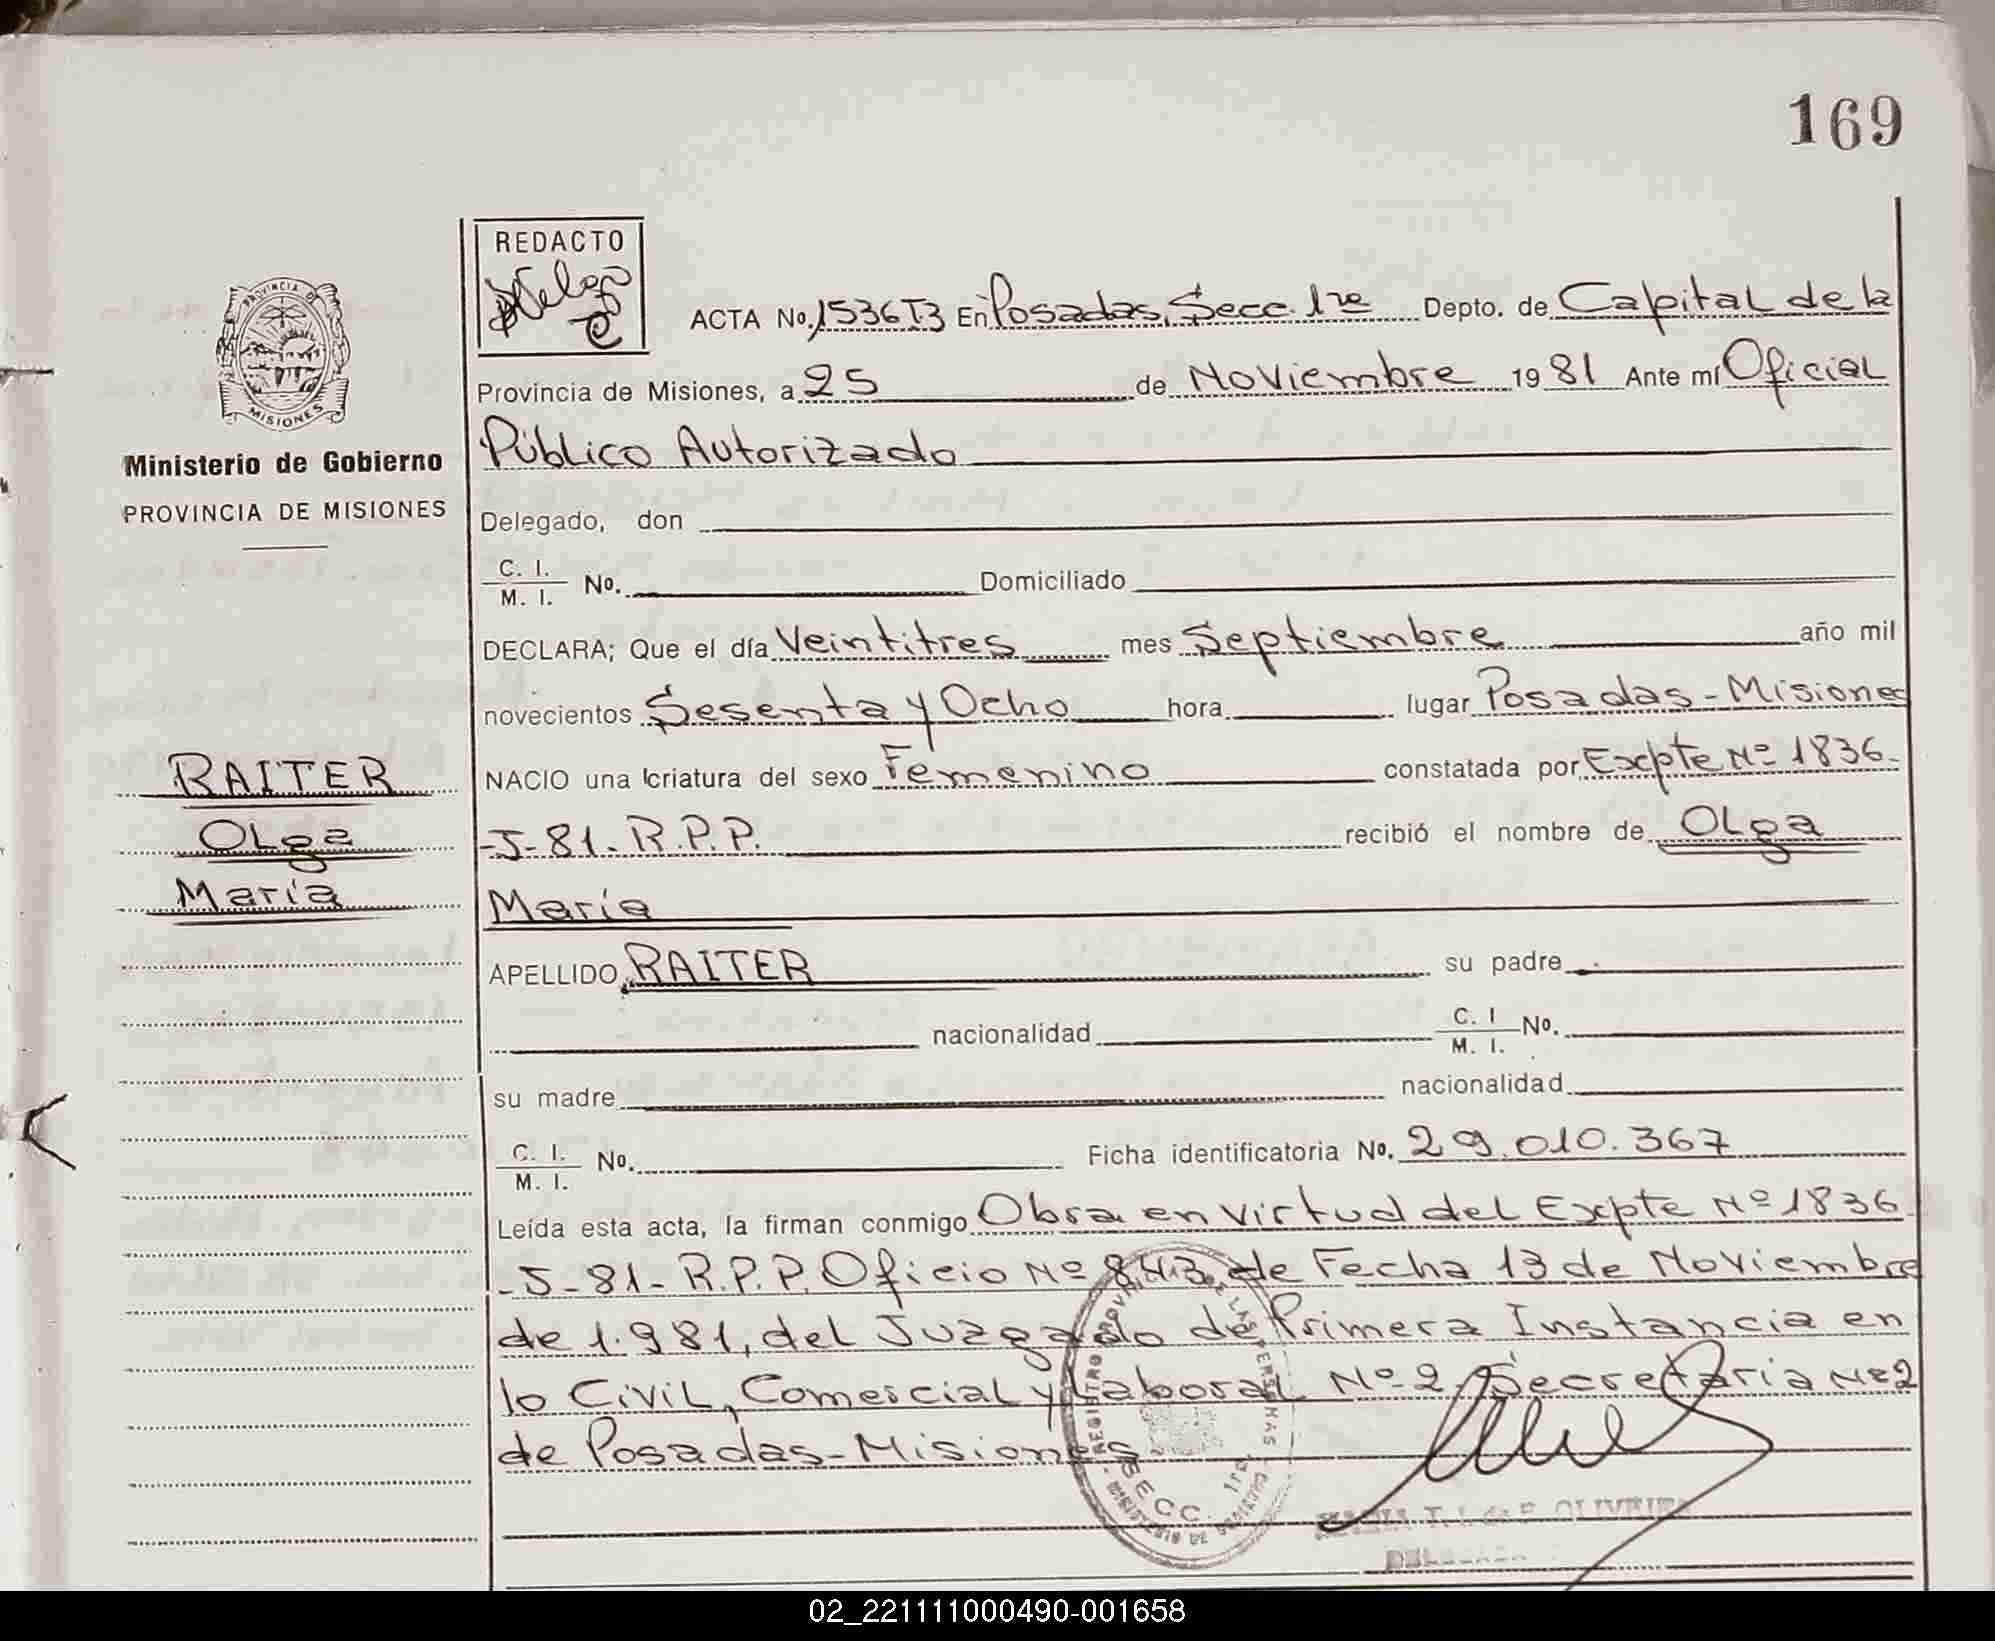 169
REDACTO
PROVINCIA DE
MISIONES
Ministerio de Gobierno
PROVINCIA DE MISIONES
ACTA No. 1536T3 En Posadas, Secc. 1re Depto. de Capital de la
Provincia de Misiones, a 25 de Noviembre 1981 Ante mí Oficial
Público Autorizado
Delegado, don
C. I.
M. I. No. Domiciliado
DECLARA; Que el día Veintitres mes Septiembre año mil
novecientos Sesenta y Ocho hora lugar Posadas - Misiones
NACIO una criatura del sexo Femenino constatada por Expte Nº 1836-
-J-81. R.P.P. recibió el nombre de Olga
María
RAITER
Olga
María
APELLIDO RAITER su padre
nacionalidad C. I
M. I. No.
su madre nacionalidad
C. I.
M. I. No. Ficha identificatoria No. 29.010.367
Leída esta acta, la firman conmigo Obra en virtud del Expte Nº 1836
-J-81- R.P.P. Oficio Nº 843 de Fecha 13 de Noviembre
de 1.981, del Juzgado de Primera Instancia en
lo Civil, Comercial y Laboral Nº 2, Secretaria Nº 2
de Posadas-Misiones
SECC. 1ra.
02_221111000490-001658